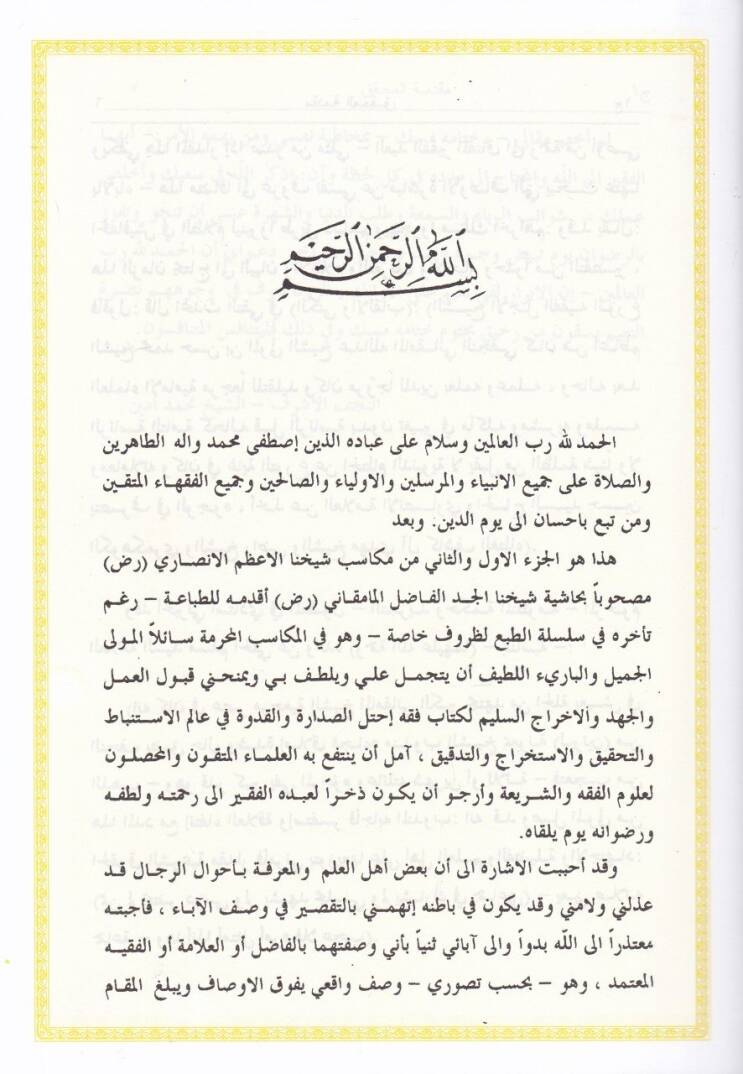 بسم الله الرحمن الرحيم
الحمد لله رب العالمين وسلام على عباده الذين إصطفى محمد واله الطاهرين
والصلاة على جميع الانبياء والمرسلين والاولياء والصالحين وجميع الفقهاء المتقين
ومن تبع باحسان الى يوم الدين. وبعد
هذا هو الجزء الاول والثاني من مكاسب شيخنا الاعظم الانصاري (رض)
مصحوباً بحاشية شيخنا الجد الفاضل المامقاني (رض) أقدمه للطباعة – رغم
تأخره في سلسلة الطبع لظروف خاصة – وهو في المكاسب المحرمة سائلاً المولى
الجميل والباريء اللطيف أن يتجمل علي ويلطف بي ويمنحني قبول العمل
والجهد والاخراج السليم لكتاب فقه إحتل الصدارة والقدوة في عالم الاستنباط
والتحقيق والاستخراج والتدقيق ، آمل أن ينتفع به العلماء المتقون والمحصلون
لعلوم الفقه والشريعة وأرجو أن يكون ذخراً لعبده الفقير الى رحمته ولطفه
ورضوانه يوم يلقاه.
وقد أحببت الاشارة الى أن بعض أهل العلم والمعرفة بأحوال الرجال قد
عذلني ولامني وقد يكون في باطنه إتهمني بالتقصير في وصف الآباء ، فأجبته
معتذراً الى الله بدواً والى آبائي ثنياً بأني وصفتهما بالفاضل أو العلامة أو الفقيه
المعتمد ، وهو – بحسب تصوري – وصف واقعي يفوق الاوصاف ويبلغ المقام